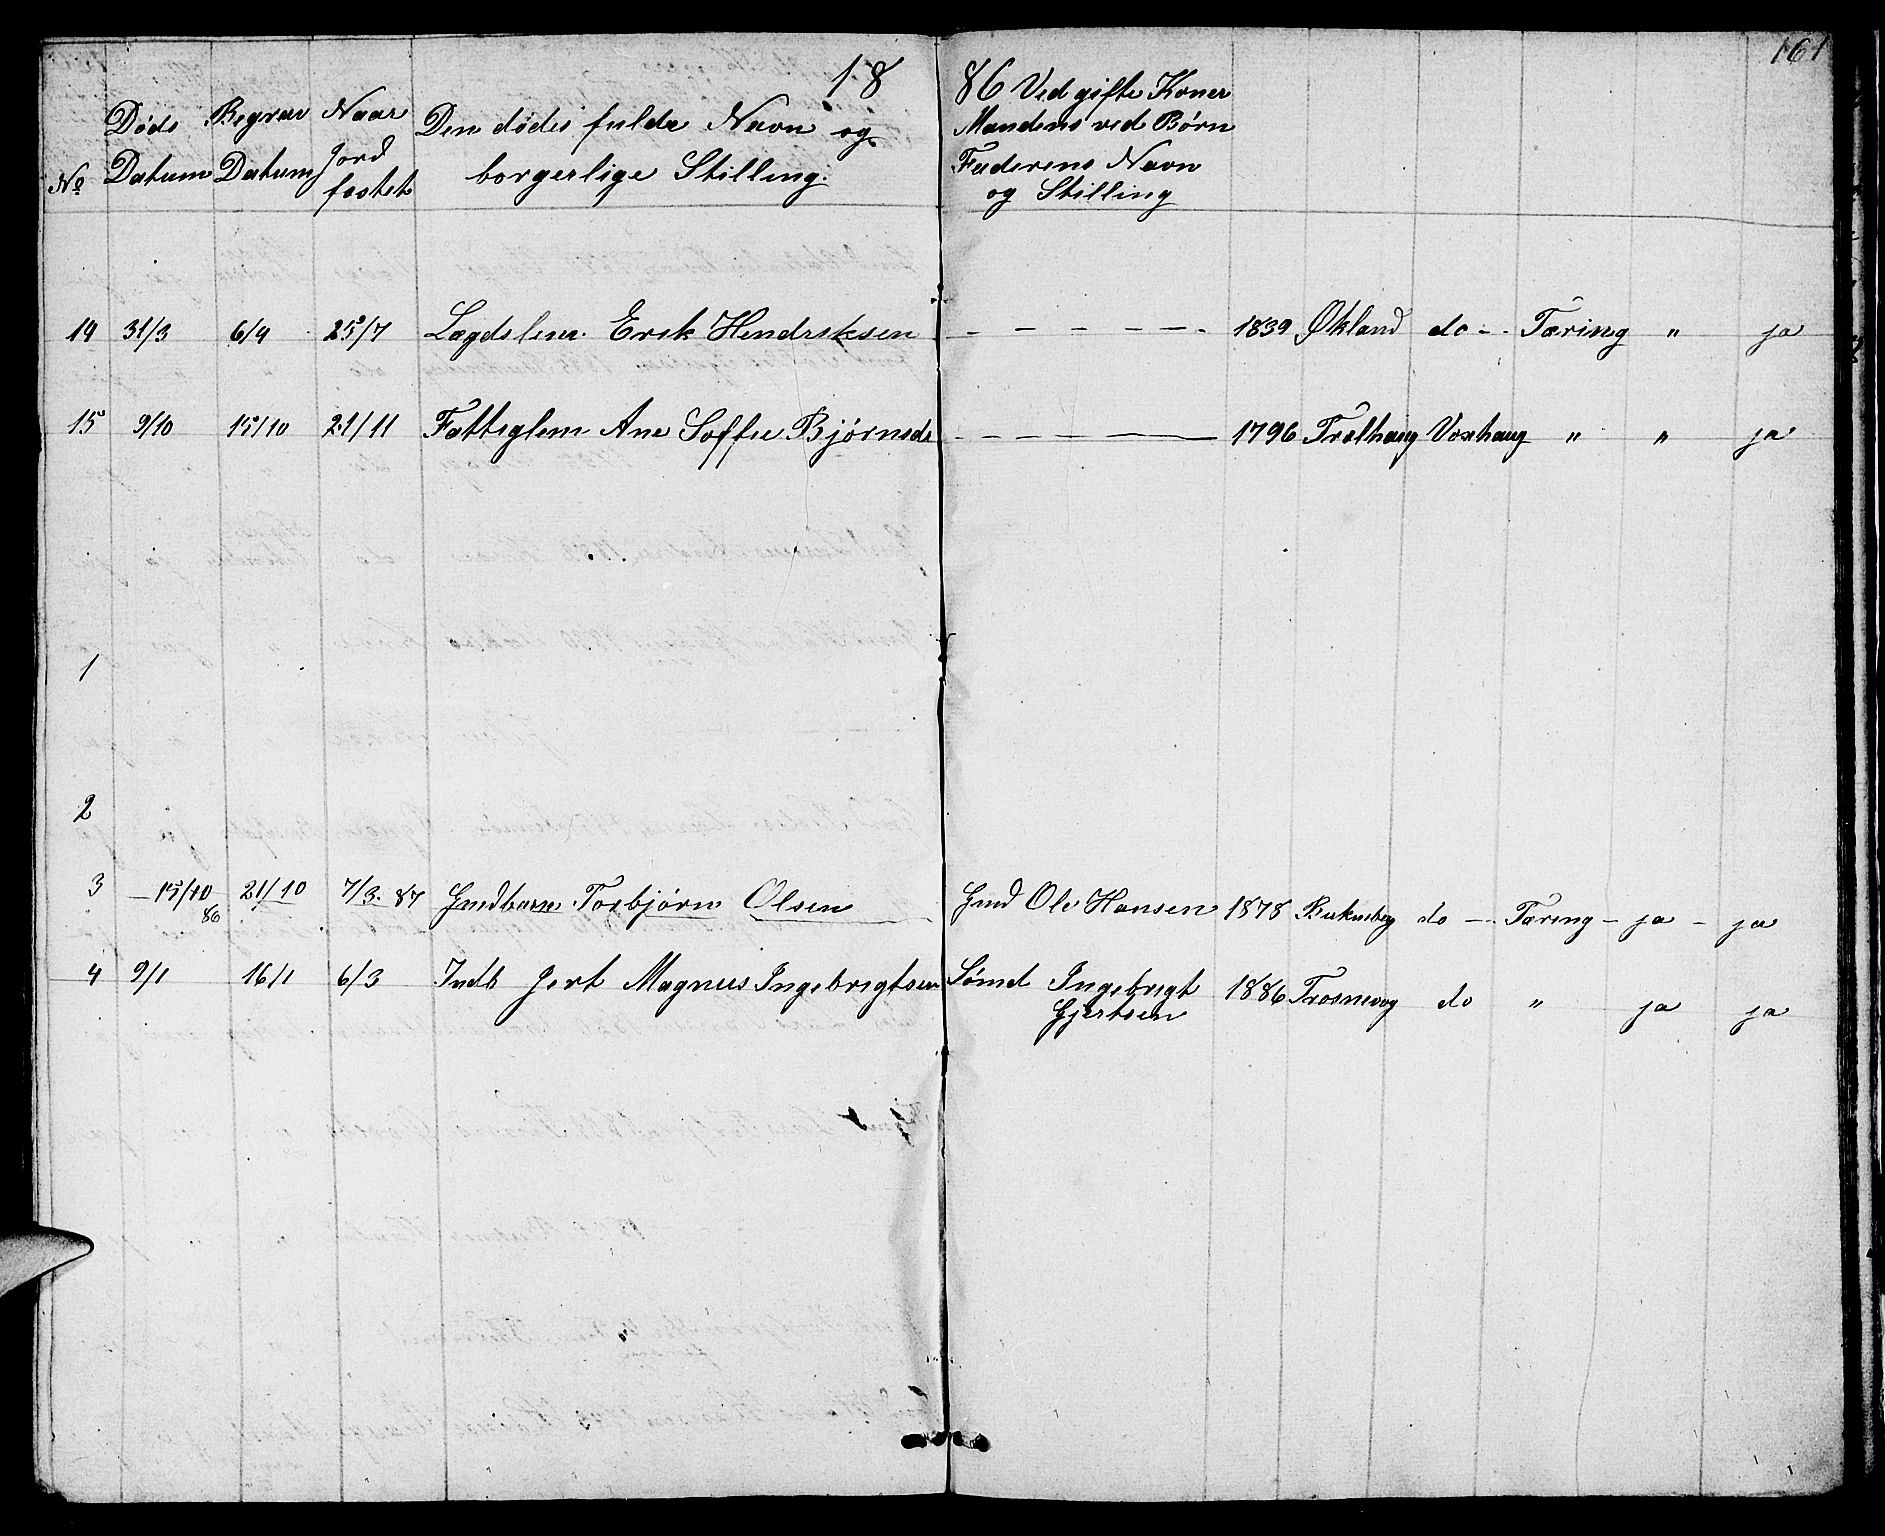 161
18 86
No
Døds Datum
Begrav Datum
Naar Jord fæstet
Den dødes fulde Navn og borgerlige Stilling.
Ved gifte Koner Mandens ved Børn Faderens Navn og Stilling
14 31/3 6/4 25/7 Lægdslem Erik Hendriksen – – – – – – 1839 Økland do – Tæring " ja
15 9/10 15/10 21/11 Fattiglem Ane Soffie Bjørnsdt – – – – – 1796 Trolhaug Voxhaug " " ja
1
2
3 15/10 86 21/10 7/3. 87 Gmdbarn Torbjørn Olsen Gmd Ole Hansen 1878 do – Tæring – ja – ja
4 9/1 16/1 6/3 Indb Gert Magnus Ingebrigtsen Sømd Ingebrigt Gjertsen 1886 Trosnevag do " ja ja